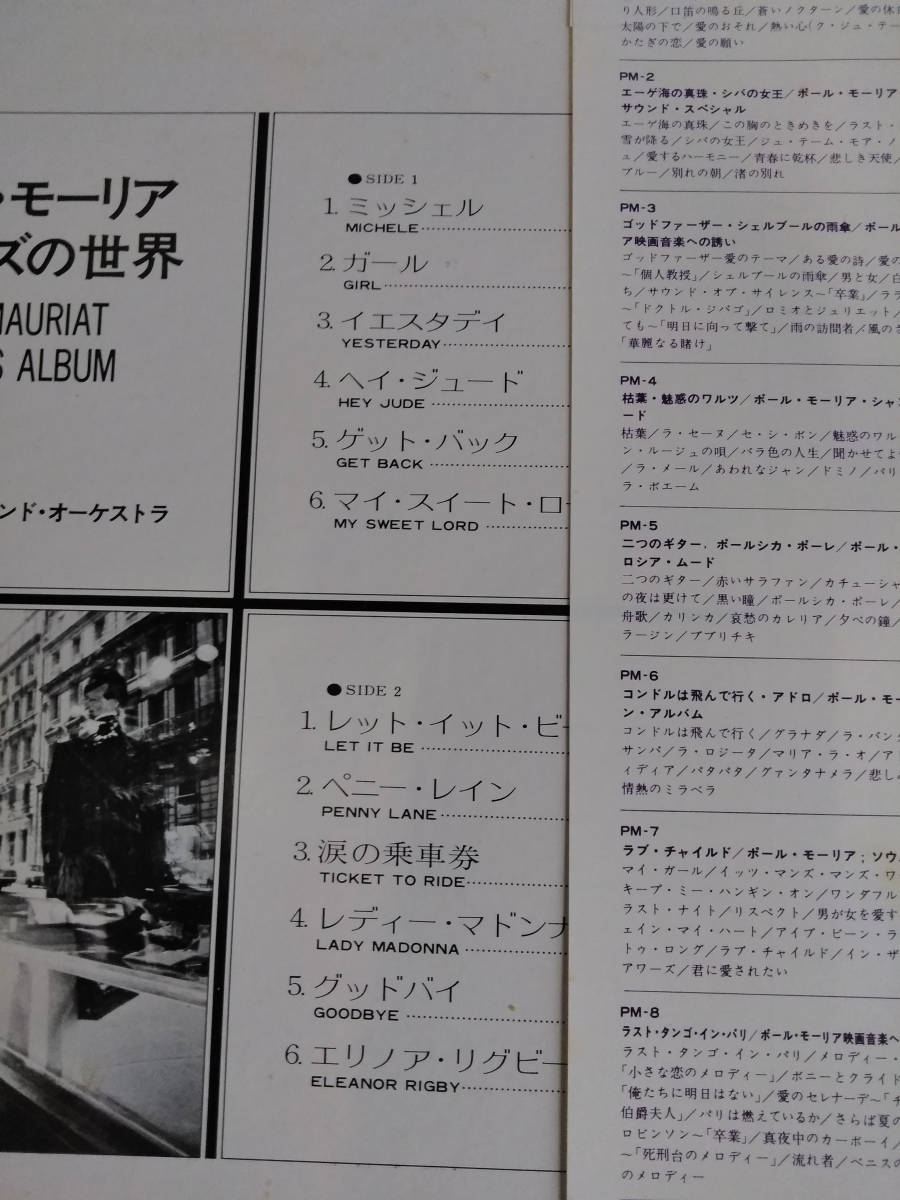 ・モーリア
ズの世界
MAURIAT
S ALBUM
ンド・オーケストラ
● SIDE 1
1. ミッシェル
MICHELE
2. ガール
GIRL
3. イエスタデイ
YESTERDAY
4. ヘイ・ジュード
HEY JUDE
5. ゲット・バック
GET BACK
6. マイ・スイート・ロー
MY SWEET LORD
● SIDE 2
1. レット・イット・ビー
LET IT BE
2. ペニー・レイン
PENNY LANE
3. 涙の乗車券
TICKET TO RIDE
4. レディー・マドンナ
LADY MADONNA
5. グッドバイ
GOODBYE
6. エリノア・リグビー
ELEANOR RIGBY
り人形／口笛の鳴る丘／蒼いノクターン／愛の休日
太陽の下で／愛のおそれ／熱い心(ク・ジュ・テー
かたぎの恋／愛の願い
PM-2
エーゲ海の真珠・シバの女王／ポール・モーリア
サウンド・スペシャル
エーゲ海の真珠／この胸のときめきを／ラスト・
雪が降る／シバの女王／ジュ・テーム・モア・ノ
ュ／愛するハーモニー／青春に乾杯／悲しき天使／
ブルー／別れの朝／渚の別れ
PM-3
ゴッドファーザー・シェルブールの雨傘／ポール
ア映画音楽への誘い
ゴッドファーザー愛のテーマ／ある愛の詩／愛の
～「個人教授」／シェルブールの雨傘／男と女／白
ち／サウンド・オブ・サイレンス～「卒業」／ララ
～「ドクトル・ジバゴ」／ロミオとジュリエット／
ても～「明日に向って撃て」／雨の訪問者／風のさ
「華麗なる賭け」
PM-4
枯葉・魅惑のワルツ／ポール・モーリア・シャン
ード
枯葉／ラ・セーヌ／セ・シ・ボン／魅惑のワル
ン・ルージュの唄／バラ色の人生／聞かせてよ
／ラ・メール／あわれなジャン／ドミノ／パリ
ラ・ボエーム
PM-5
二つのギター，ポールシカ・ポーレ／ポール・
ロシア・ムード
二つのギター／赤いサラファン／カチューシャ
の夜は更けて／黒い瞳／ポールシカ・ポーレ／
舟歌／カリンカ／哀愁のカレリア／夕べの鐘／
ラージン／ブブリチキ
PM-6
コンドルは飛んで行く・アドロ／ポール・モー
ン・アルバム
コンドルは飛んで行く／グラナダ／ラ・バン
サンバ／ラ・ロジータ／マリア・ラ・オ／アド
ィディア／パタパタ／グァンタナメラ／悲しみ
情熱のミラベラ
PM-7
ラブ・チャイルド／ポール・モーリア；ソウル
マイ・ガール／イッツ・マンズ・マンズ・ワー
キープ・ミー・ハンギン・オン／ワンダフル
ラスト・ナイト／リスペクト／男が女を愛す
ェイン・マイ・ハート／アイブ・ビーン・ラ
トゥ・ロング／ラブ・チャイルド／イン・ザ
アワーズ／君に愛されたい
PM-8
ラスト・タンゴ・イン・パリ／ポール・モーリア映画音楽へ
ラスト・タンゴ・イン・パリ／メロディー・
「小さな恋のメロディー」／ボニーとクライド
「俺たちに明日はない」／愛のセレナーデ～「チ
伯爵夫人」／パリは燃えているか／さらば夏の
ロビンソン～「卒業」／真夜中のカーボーイ／
～「死刑台のメロディー」／流れ者／ベニスの
のメロディー